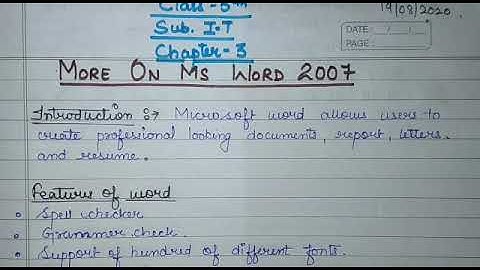 Class - 5th
19/08/2020.
Sub. I.T
DATE: __/__/__
PAGE: ______
Chapter - 3
MORE ON MS WORD 2007
Introduction :→ Microsoft word allows users to
create profesional looking documents, report, letters
and resume.
Features of word
• Spell checker
• Grammer check.
• Support of hundred of different fonts.